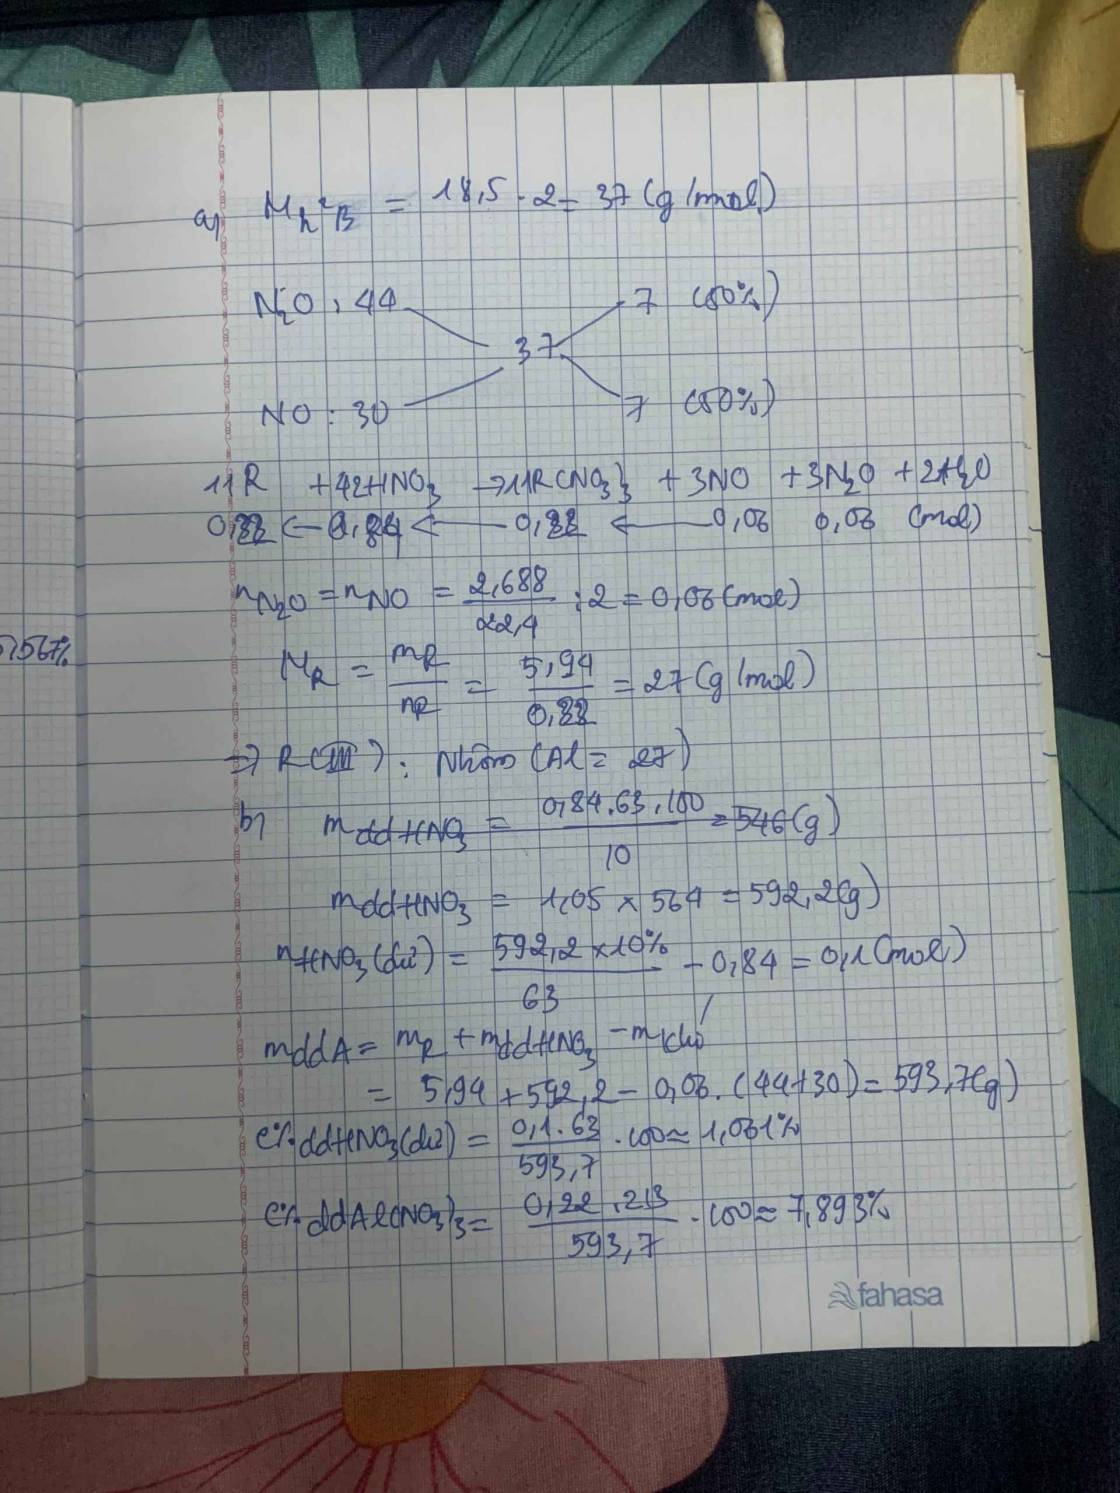 a) M h² B = 18,5 . 2 = 37 (g/mol)
N₂O : 44 7 (50%)
37
NO : 30 7 (50%)
11R + 42HNO₃ → 11R(NO₃)₃ + 3NO + 3N₂O + 21H₂O
0,22 ← 0,84 ← 0,22 ← 0,06 0,06 (mol)
nN₂O = nNO = 2,688 / 22,4 : 2 = 0,06 (mol)
M_R = m_R / n_R = 5,94 / 0,22 = 27 (g/mol)
⇒ R (III) : Nhôm (Al = 27)
b) mddHNO₃ = 0,84.63.100 / 10 = 546 (g)
mddHNO₃ = 1,05 × 564 = 592,2 (g)
nHNO₃(dư) = 592,2 × 10% / 63 - 0,84 = 0,1 (mol)
mddA = m_R + mddHNO₃ - m khí
= 5,94 + 592,2 - 0,06. (44+30) = 593,7 (g)
C% ddHNO₃(dư) = 0,1.63 / 593,7 . 100 ≈ 1,061%
C% ddAl(NO₃)₃ = 0,22 . 213 / 593,7 . 100 ≈ 7,893%
567%
fahasa